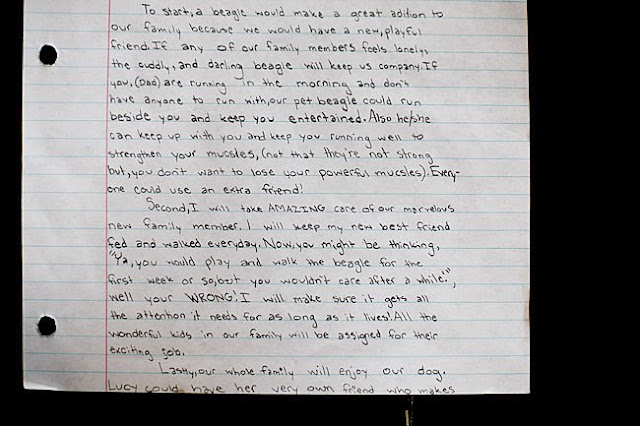 To start, a beagle would make a great adition to
our family because we would have a new, playful
friend. If any of our family members feels lonely,
the cuddly, and darling beagle will keep us company. If
you, (Dad) are running in the morning and don't
have anyone to run with, our pet beagle could run
beside you and keep you entertained. Also he/she
can keep up with you and keep you running well to
strengthen your mucsles, (not that they're not strong
but, you don't want to lose your powerful mucsles). Every-
one could use an extra friend!
Second, I will take AMAZING care of our marvelous
new family member. I will keep my new best friend
fed and walked everyday. Now, you might be thinking,
"Ya, you would play and walk the beagle for the
first week or so, but you wouldn't care after a while!",
well your WRONG! I will make sure it gets all
the attention it needs for as long as it lives! All the
wonderful kids in our family will be assigned for their
exciting job.
Lastly, our whole family will enjoy our dog.
Lucy could have her very own friend who makes